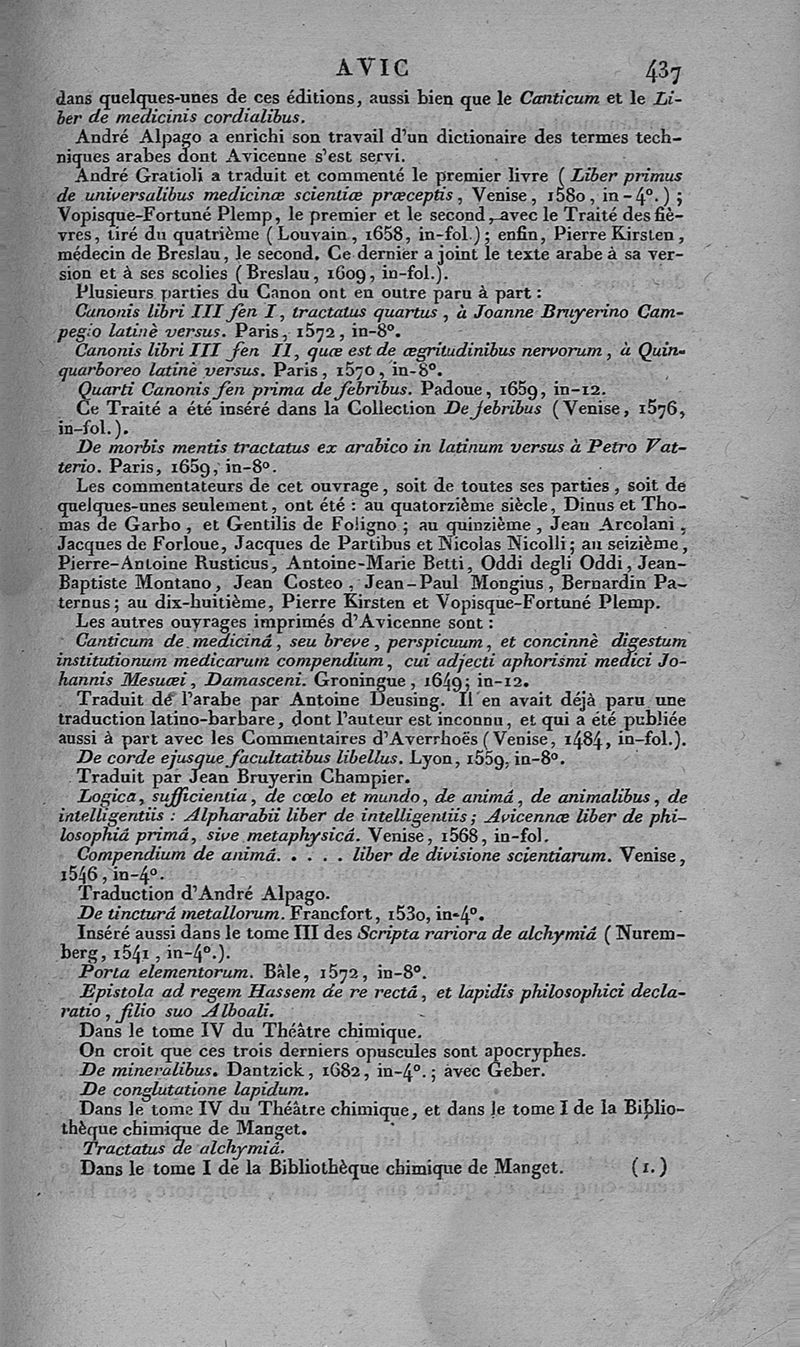 AVIC 437
dans quelques-unes de ces éditions, aussi bien que le Canticum et le Li-
ber de medicinis cordialibus.
André Alpago a enrichi son travail d'un dictionaire des termes tech-
niques arabes dont Avicenne s'est servi.
André Gratioli a traduit et commenté le premier livre ( Liber primus
de universalibus medicinæ scientiæ præceptis, Venise, 1580, in-4°. ) ;
Vopisque-Fortuné Plemp, le premier et le second, avec le Traité des fiè-
vres, tiré du quatrième ( Louvain, 1658, in-fol.); enfin, Pierre Kirsten,
médecin de Breslau, le second. Ce dernier a joint le texte arabe à sa ver-
sion et à ses scolies ( Breslau, 1609, in-fol.).
Plusieurs parties du Canon ont en outre paru à part :
Canonis libri III fen I, tractatus quartus, à Joanne Bruyerino Cam-
pegio latinè versus. Paris, 1572, in-8°.
Canonis libri III fen II, quæ est de ægritudinibus nervorum, à Quin-
quarboreo latinè versus. Paris, 1570, in-8°.
Quarti Canonis fen prima de febribus. Padoue, 1659, in-12.
Ce Traité a été inséré dans la Collection De febribus ( Venise, 1576,
in-fol. ).
De morbis mentis tractatus ex arabico in latinum versus à Petro Vat-
terio. Paris, 1659, in-8°.
Les commentateurs de cet ouvrage, soit de toutes ses parties, soit de
quelques-unes seulement, ont été : au quatorzième siècle, Dinus et Tho-
mas de Garbo, et Gentilis de Foligno ; au quinzième, Jean Arcolani,
Jacques de Forloue, Jacques de Partibus et Nicolas Nicolli; au seizième,
Pierre-Antoine Rusticus, Antoine-Marie Betti, Oddi degli Oddi, Jean-
Baptiste Montano, Jean Costeo, Jean-Paul Mongius, Bernardin Pa-
ternus; au dix-huitième, Pierre Kirsten et Vopisque-Fortuné Plemp.
Les autres ouvrages imprimés d'Avicenne sont :
Canticum de mediciná, seu breve, perspicuum, et concinnè digestum
institutionum medicarum compendium, cui adjecti aphorismi medici Jo-
hannis Mesuæi, Damasceni. Groningue, 1649; in-12.
Traduit de l'arabe par Antoine Deusing. Il en avait déjà paru une
traduction latino-barbare, dont l'auteur est inconnu, et qui a été publiée
aussi à part avec les Commentaires d'Averrhoës ( Venise, 1484, in-fol.).
De corde ejusque facultatibus libellus. Lyon, 1559, in-8°.
Traduit par Jean Bruyerin Champier.
Logica, sufficientia, de cœlo et mundo, de animá, de animalibus, de
intelligentiis : Alpharabii liber de intelligentiis; Avicennæ liber de phi-
losophiá primá, sive metaphysicá. Venise, 1568, in-fol.
Compendium de animá. . . . . liber de divisione scientiarum. Venise,
1546, in-4°.
Traduction d'André Alpago.
De tincturá metallorum. Francfort, 1530, in-4°.
Inséré aussi dans le tome III des Scripta rariora de alchymiá ( Nurem-
berg, 1541, in-4°.).
Porta elementorum. Bâle, 1572, in-8°.
Epistola ad regem Hassem de re rectá, et lapidis philosophici decla-
ratio, filio suo Alboali.
Dans le tome IV du Théâtre chimique.
On croit que ces trois derniers opuscules sont apocryphes.
De mineralibus. Dantzick, 1682, in-4°. ; avec Geber.
De conglutatione lapidum.
Dans le tome IV du Théâtre chimique, et dans le tome I de la Biblio-
thèque chimique de Manget.
Tractatus de alchymiá.
Dans le tome I de la Bibliothèque chimique de Manget. (1.)